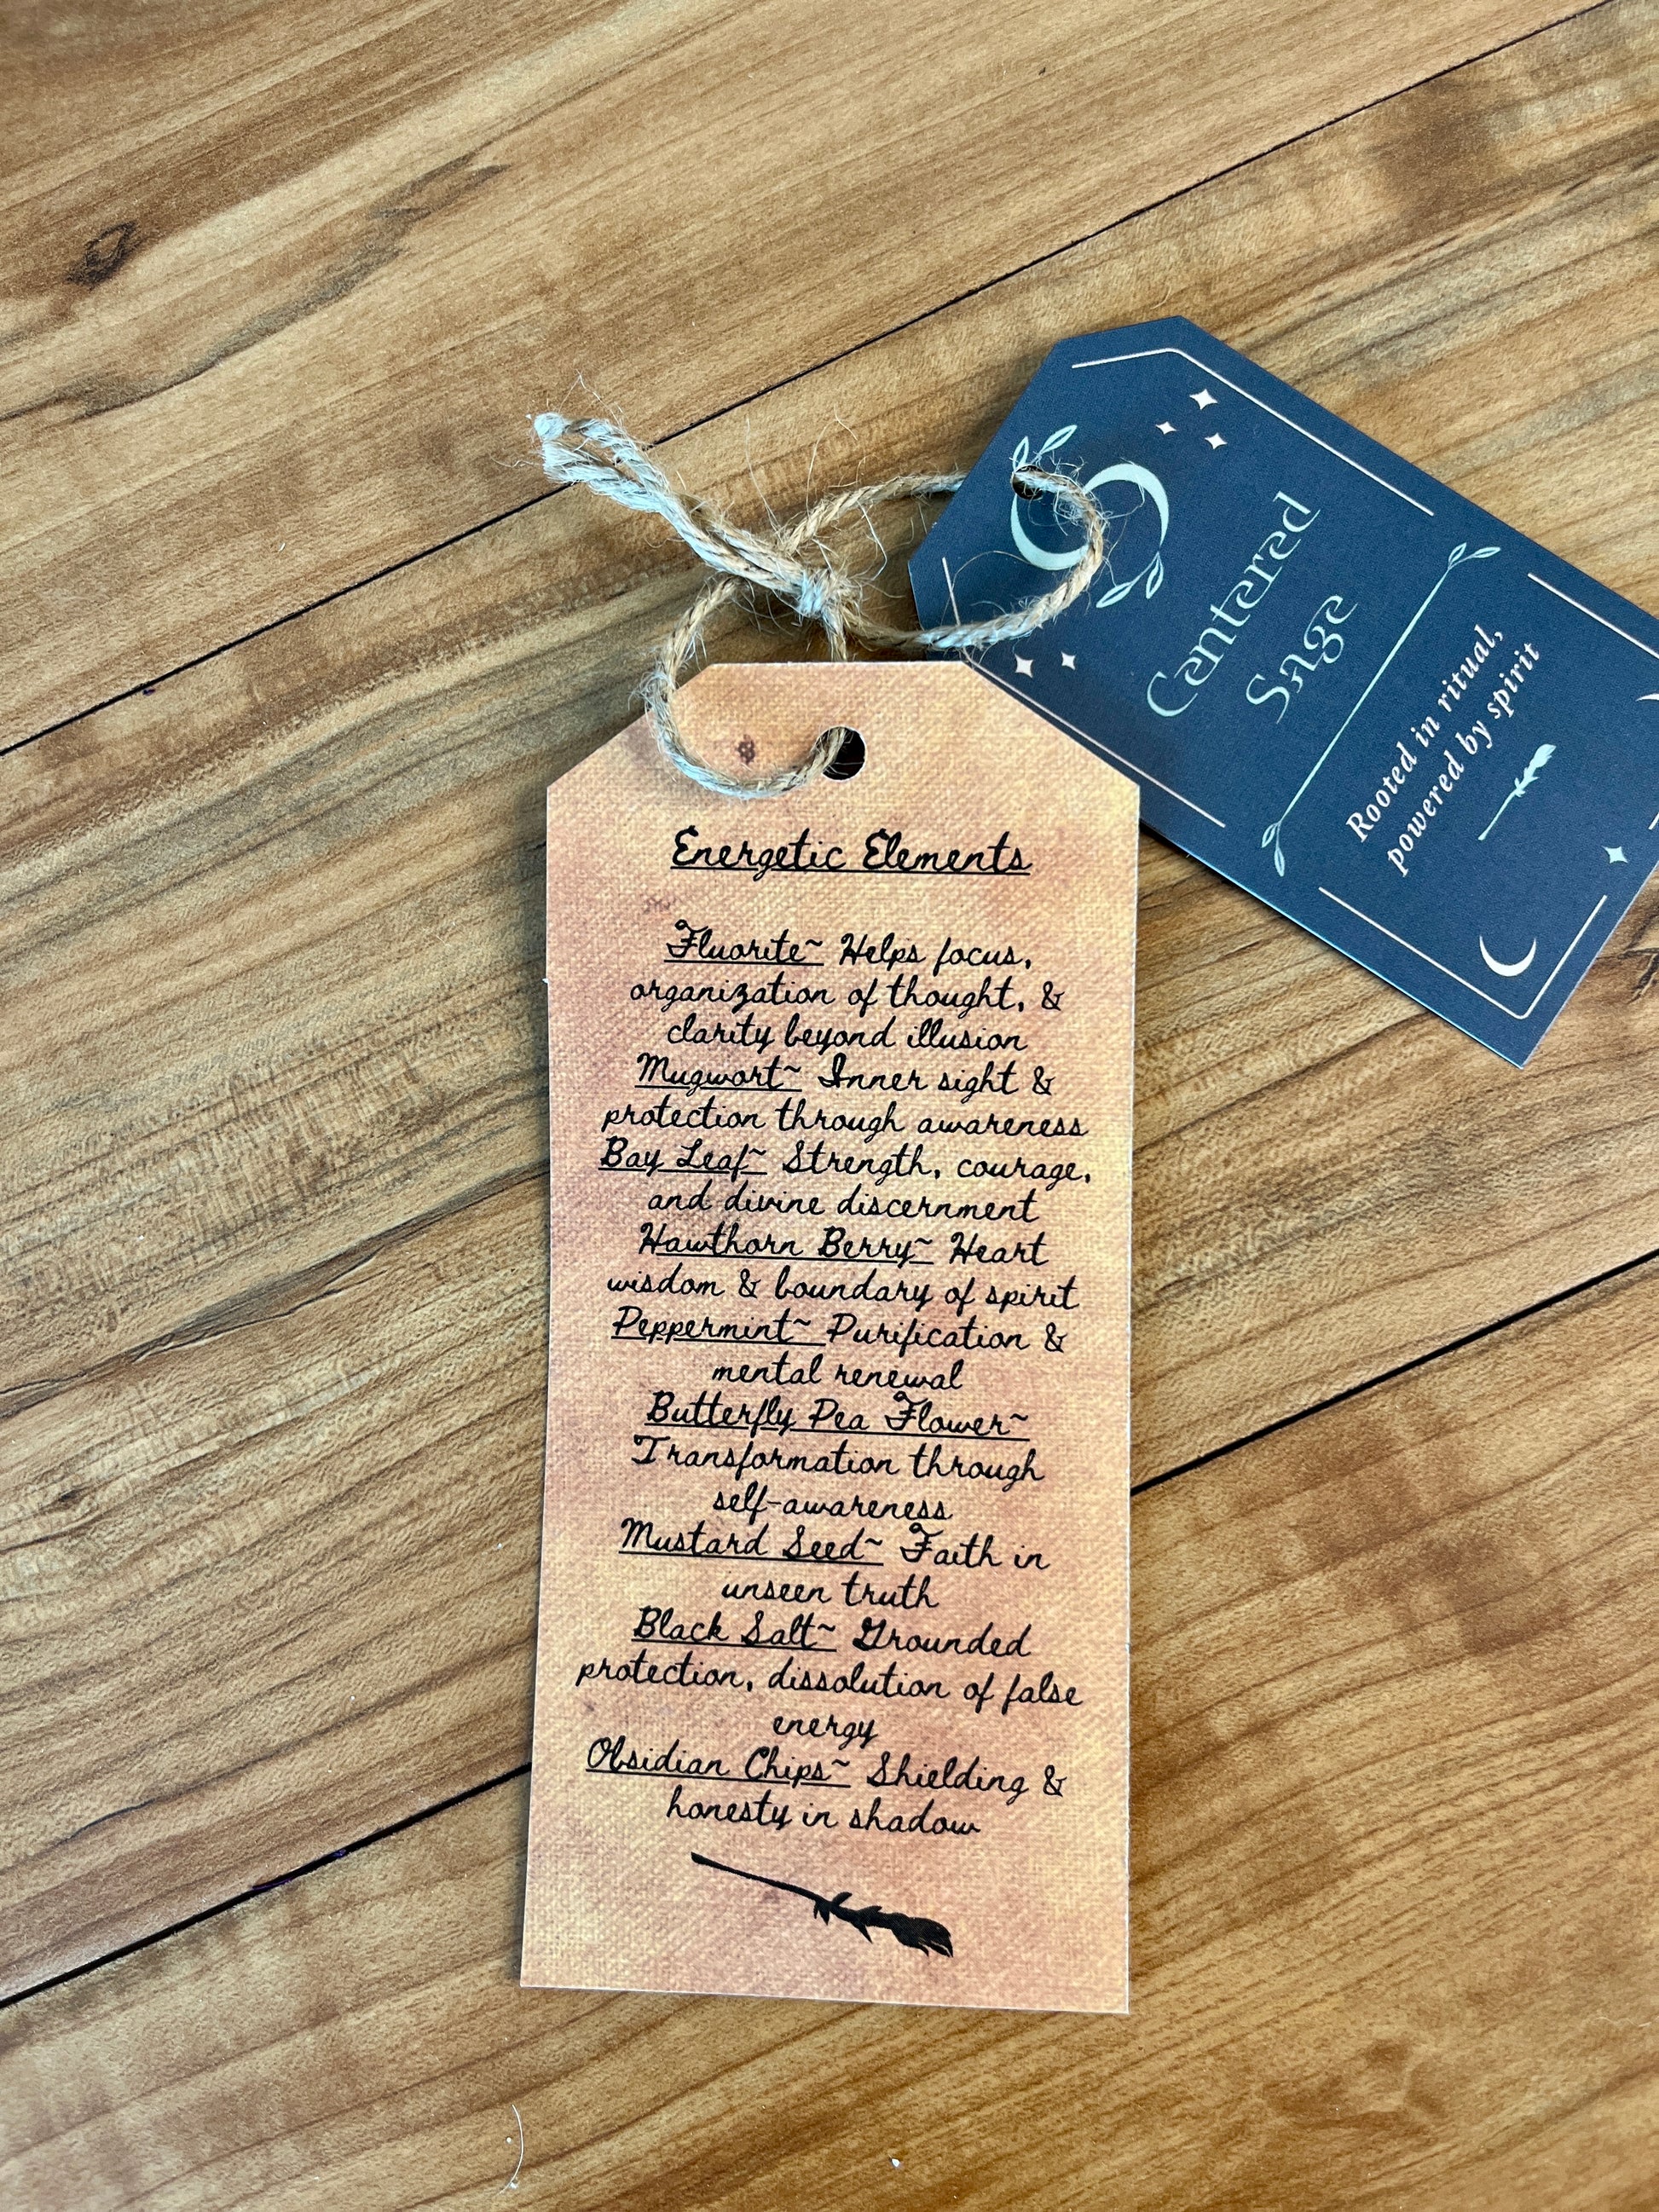 Centered
Sage
Rooted in ritual,
powered by spirit
Energetic Elements
Fluorite~ Helps focus,
organization of thought, &
clarity beyond illusion
Mugwort~ Inner sight &
protection through awareness
Bay Leaf~ Strength, courage,
and divine discernment
Hawthorn Berry~ Heart
wisdom & boundary of spirit
Peppermint~ Purification &
mental renewal
Butterfly Pea Flower~
Transformation through
self-awareness
Mustard Seed~ Faith in
unseen truth
Black Salt~ Grounded
protection, dissolution of false
energy
Obsidian Chips~ Shielding &
honesty in shadow